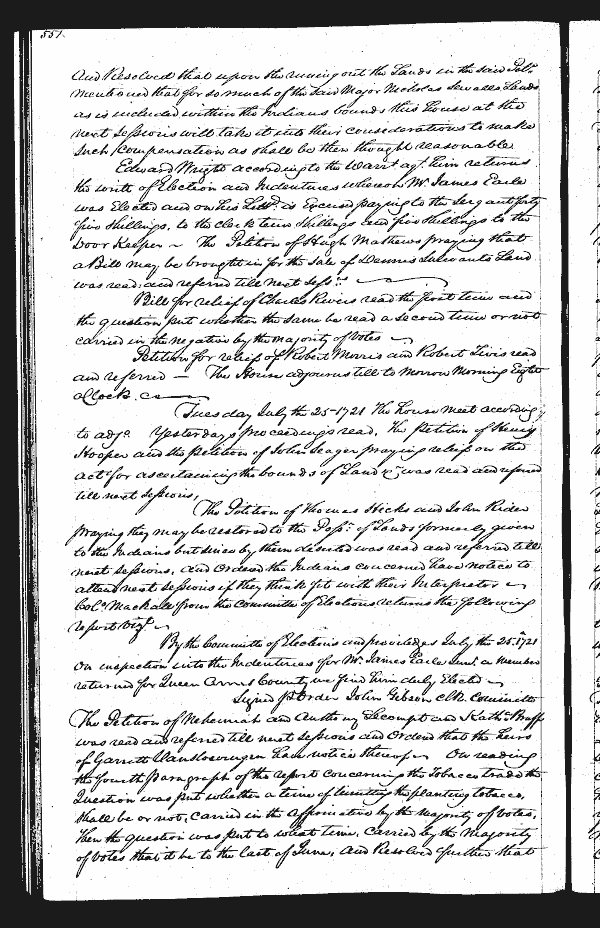 551.
And Resolved that upon the runing out the Lands in the said
mentioned that for so much of the said Major Nicholas Sewalls Lands
as is included within the Indians bounds this house at the
next Sessions will take it into their considerations to make
such Compensation as shall be then thought reasonable
Edward Wright according to the Warrt agt him returns
the writ of Election and Indentures whereon Mr. James Earle
was Elected and on his is Excused paying to the Sergeant forty
five shillings, to the clerk tenn shillings and five shillings to the
Door Keeper ~ The Petition of Hugh Mathews praying that
a Bill may be brought in for the sale of Dennis Land
was read and referred till next Sess:
Bill for releif of Charles Rivers read the first time and
the question put whether the same be read a second time or not
carried in the negative by the majority of votes ~
Petition for releif of Robert Morris and Robert read
and referred — The House adjourns till to Morrow Morning Eight
a Clock.
Tuesday July the 25-1721 The house meet according
to adjo. Yesterdays proceedings read. The petition of Henry
Hooper and the petition of John Seager praying releif on the
act for ascertaining the bounds of Land &c was read and referred
till next Sessions,
The Petition of Thomas Hicks and John Rider
praying they may be restored to the Poss: of Lands formerly given
to the Indians but since by them deserted was read and referred till
next sessions, and Ordered the Indians concerned have notice to
attend next sessions if they think fit with their Interpreter ~
Colo Mackall from the Committe of Elections returns the following
report Vizt ~
By the Committe of Elections and priviledges July the 25. 1721
On inspection into the Indentures for Mr. James Earle Junr. a member
returned for Queen Annes County, we find him duly Elected ~
Signed p Order John Gibson Clk. Committe
The Petition of Nehemiah and Anthony Lecompt and Kath:
was read and referred till next sessions and Ordered that the heirs
of Garrett Vansweringen have notice thereof ~ On reading
the fourth paragraph of the report concerning the Tobacco trade the
Question was put whether a time of limitting the planting tobacco,
shall be or not, carried in the affirmative by the majority of votes.
then the question was put to what time, carried by the Majority
of votes that it be to the last of June, and Resolved further that